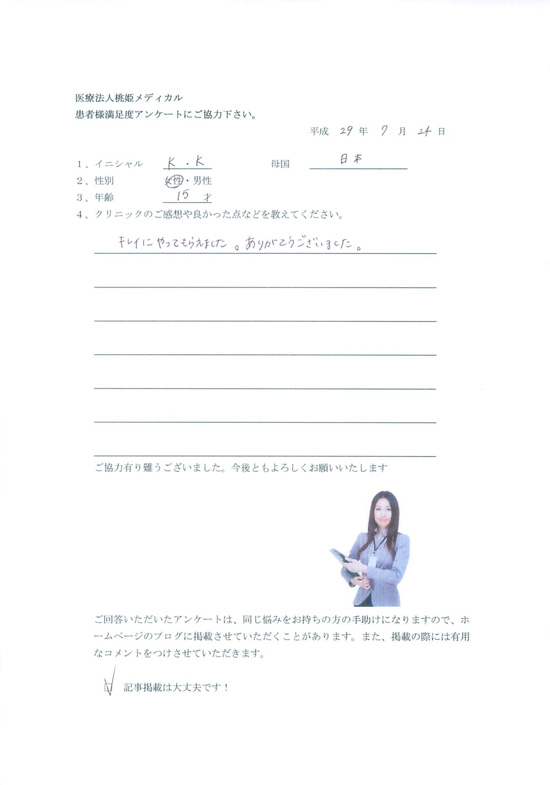 医療法人桃姫メディカル
患者様満足度アンケートにご協力下さい。
平成 29 年 7 月 24 日
1、イニシャル K・K 母国 日本
2、性別 女性・男性
3、年齢 15 才
4、クリニックのご感想や良かった点などを教えてください。
キレイにやってもらえました。ありがとうございました。
ご協力有り難うございました。今後ともよろしくお願いいたします
ご回答いただいたアンケートは、同じ悩みをお持ちの方の手助けになりますので、ホ
ームページのブログに掲載させていただくことがあります。また、掲載の際には有用
なコメントをつけさせていただきます。
記事掲載は大丈夫です！